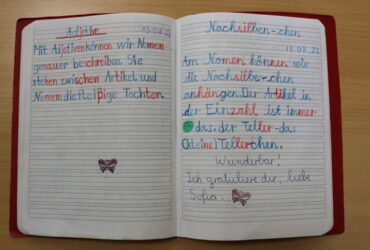 Adjektive
15.03.22
Mit Adjektiven können wir Nomen
genauer beschreiben. Sie
stehen zwischen Artikel und
Nomen: die fleißige Tochter.
Nachsilben -chen
18.03.22
Am Nomen können wir
die Nachsilbe -chen
anhängen. Der Artikel in
der Einzahl ist immer
das: der Teller - das
(kleine) Tellerchen.
Wunderbar!
Ich gratuliere dir, liebe
Sofia.